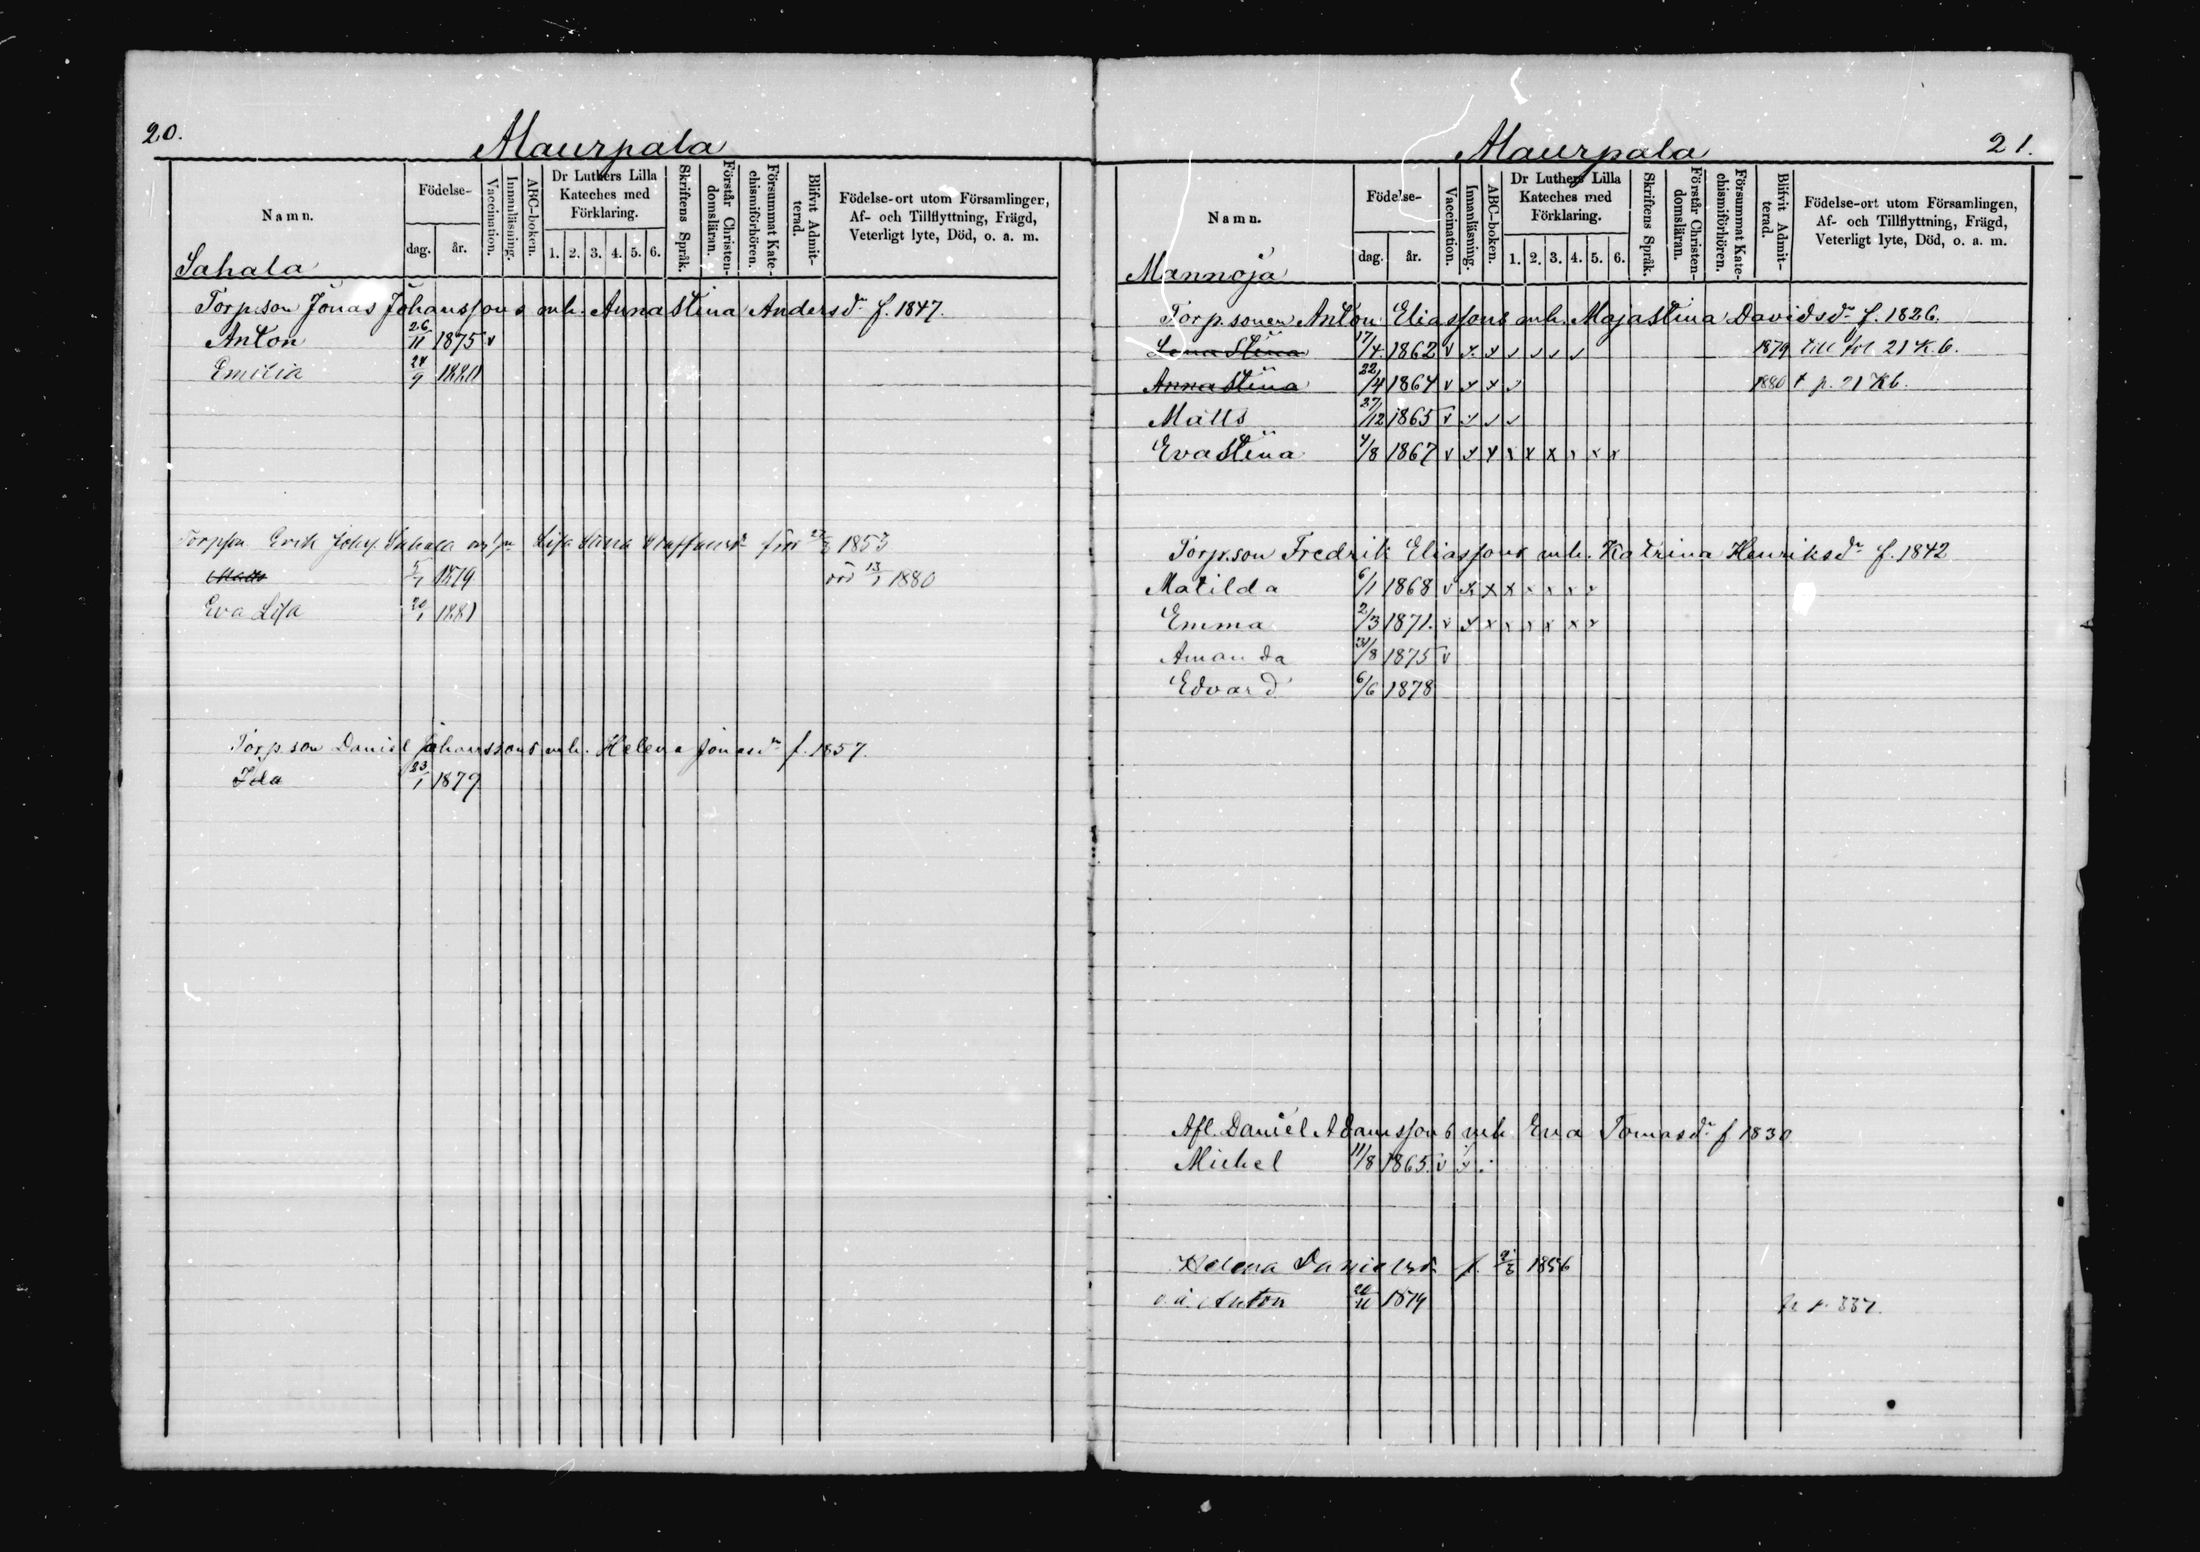 20.
Maurpala
Namn.
Födelse-
dag.
år.
Vaccination.
Innanläsning.
ABC-boken.
Dr Luthers Lilla Kateches med Förklaring.
1. 2. 3. 4. 5. 6.
Skriftens Språk.
Förstår Christendomsläran.
Försummat Katechismiförhören.
Blifvit Admitterad.
Födelse-ort utom Församlingen, Af- och Tillflyttning, Frägd, Veterligt lyte, Död, o. a. m.
Sahala
Torp.son Jonas Johanssons mh. Anna Stina Andersdr f. 1847.
Anton 26/11 1875 v
Emilia 24/9 1880
Torpson Erik Johs. Sahala Lisa Stina Staffansdr 1853
Matts 5/1 1879 död 13/1 1880
Eva Lisa 20/1 1881
Torp.son Daniel Johanssons mh. Helena Jonasdr f. 1857.
Ida 23/1 1879
Maurpala
21.
Namn.
Födelse-
dag.
år.
Vaccination.
Innanläsning.
ABC-boken.
Dr Luthers Lilla Kateches med Förklaring.
1. 2. 3. 4. 5. 6.
Skriftens Språk.
Förstår Christendomsläran.
Försummat Katechismiförhören.
Blifvit Admitterad.
Födelse-ort utom Församlingen, Af- och Tillflyttning, Frägd, Veterligt lyte, Död, o. a. m.
Mannoja
Torp.sonen Anton Eliassons mh. Maja Stina Davidsdr f. 1826.
Lena Stina 17/4 1862 v x x v v v v 1879 till fol 21 K.b.
Anna Stina 22/4 1864 v x x v 1880 t p. 21 Kb.
Matts 27/12 1865 v v v v
Eva Stina 4/8 1867 v x x x x x x x x
Torp.son Fredrik Eliassons mh. Katrina Henriksdr f. 1842
Matilda 6/1 1868 v x x x x x x x
Emma 2/3 1871. v x x x x x x x
Amanda 31/8 1875 v
Edvard 6/6 1878
Afl. Daniel Adamssons mh Eva Tomasdr f 1830
Michel 11/8 1865. v x
Helena Danielsdr f. 1856
o.ä. Anton 20/11 1879 p. 337.